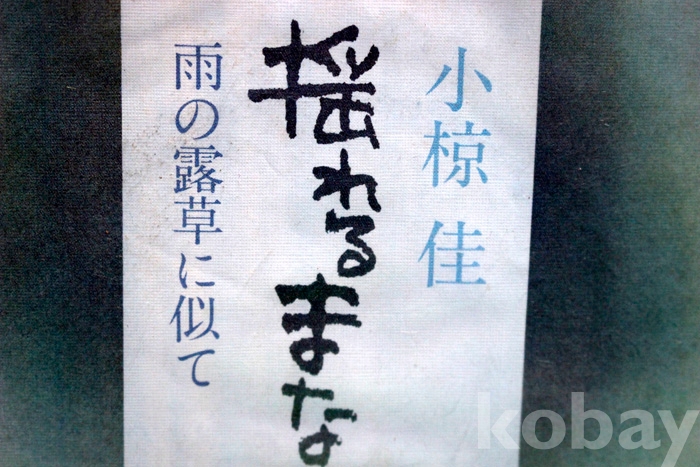 小椋 佳
揺れるまな
雨の露草に似て
kobay